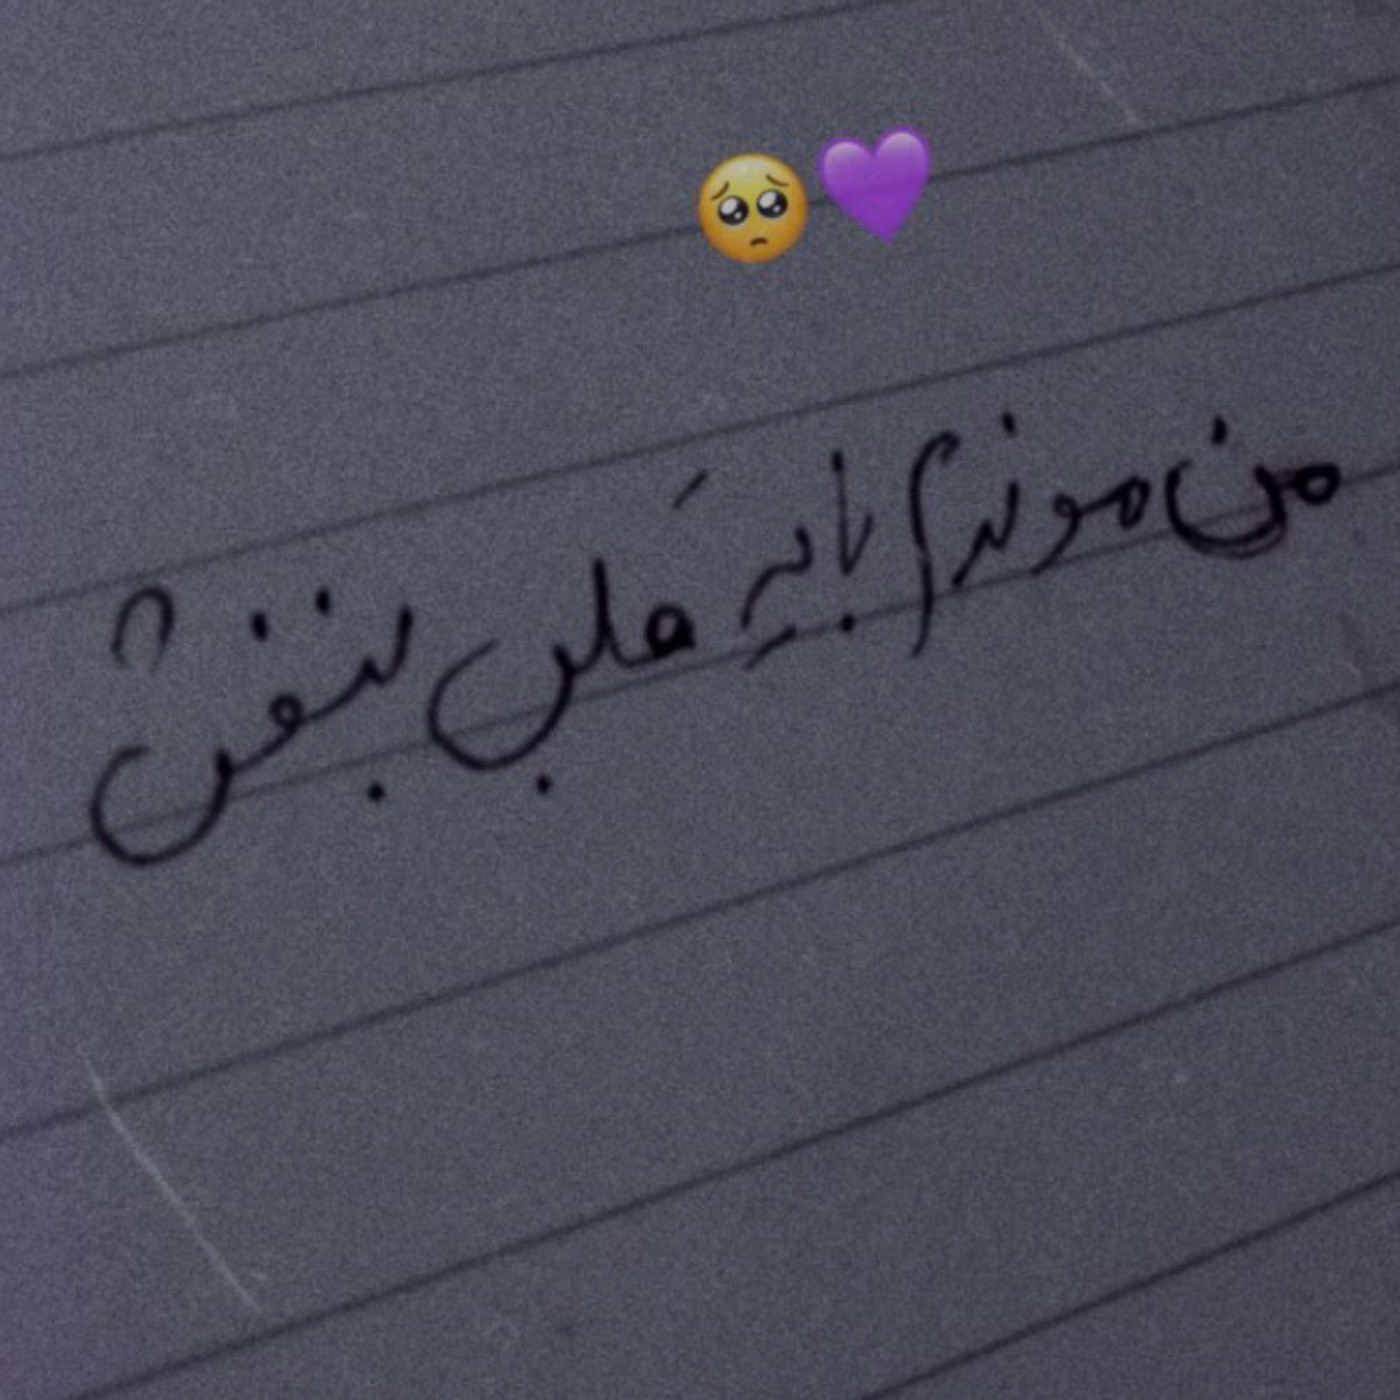 🥺💜
من موندم با یه قلب بنفش